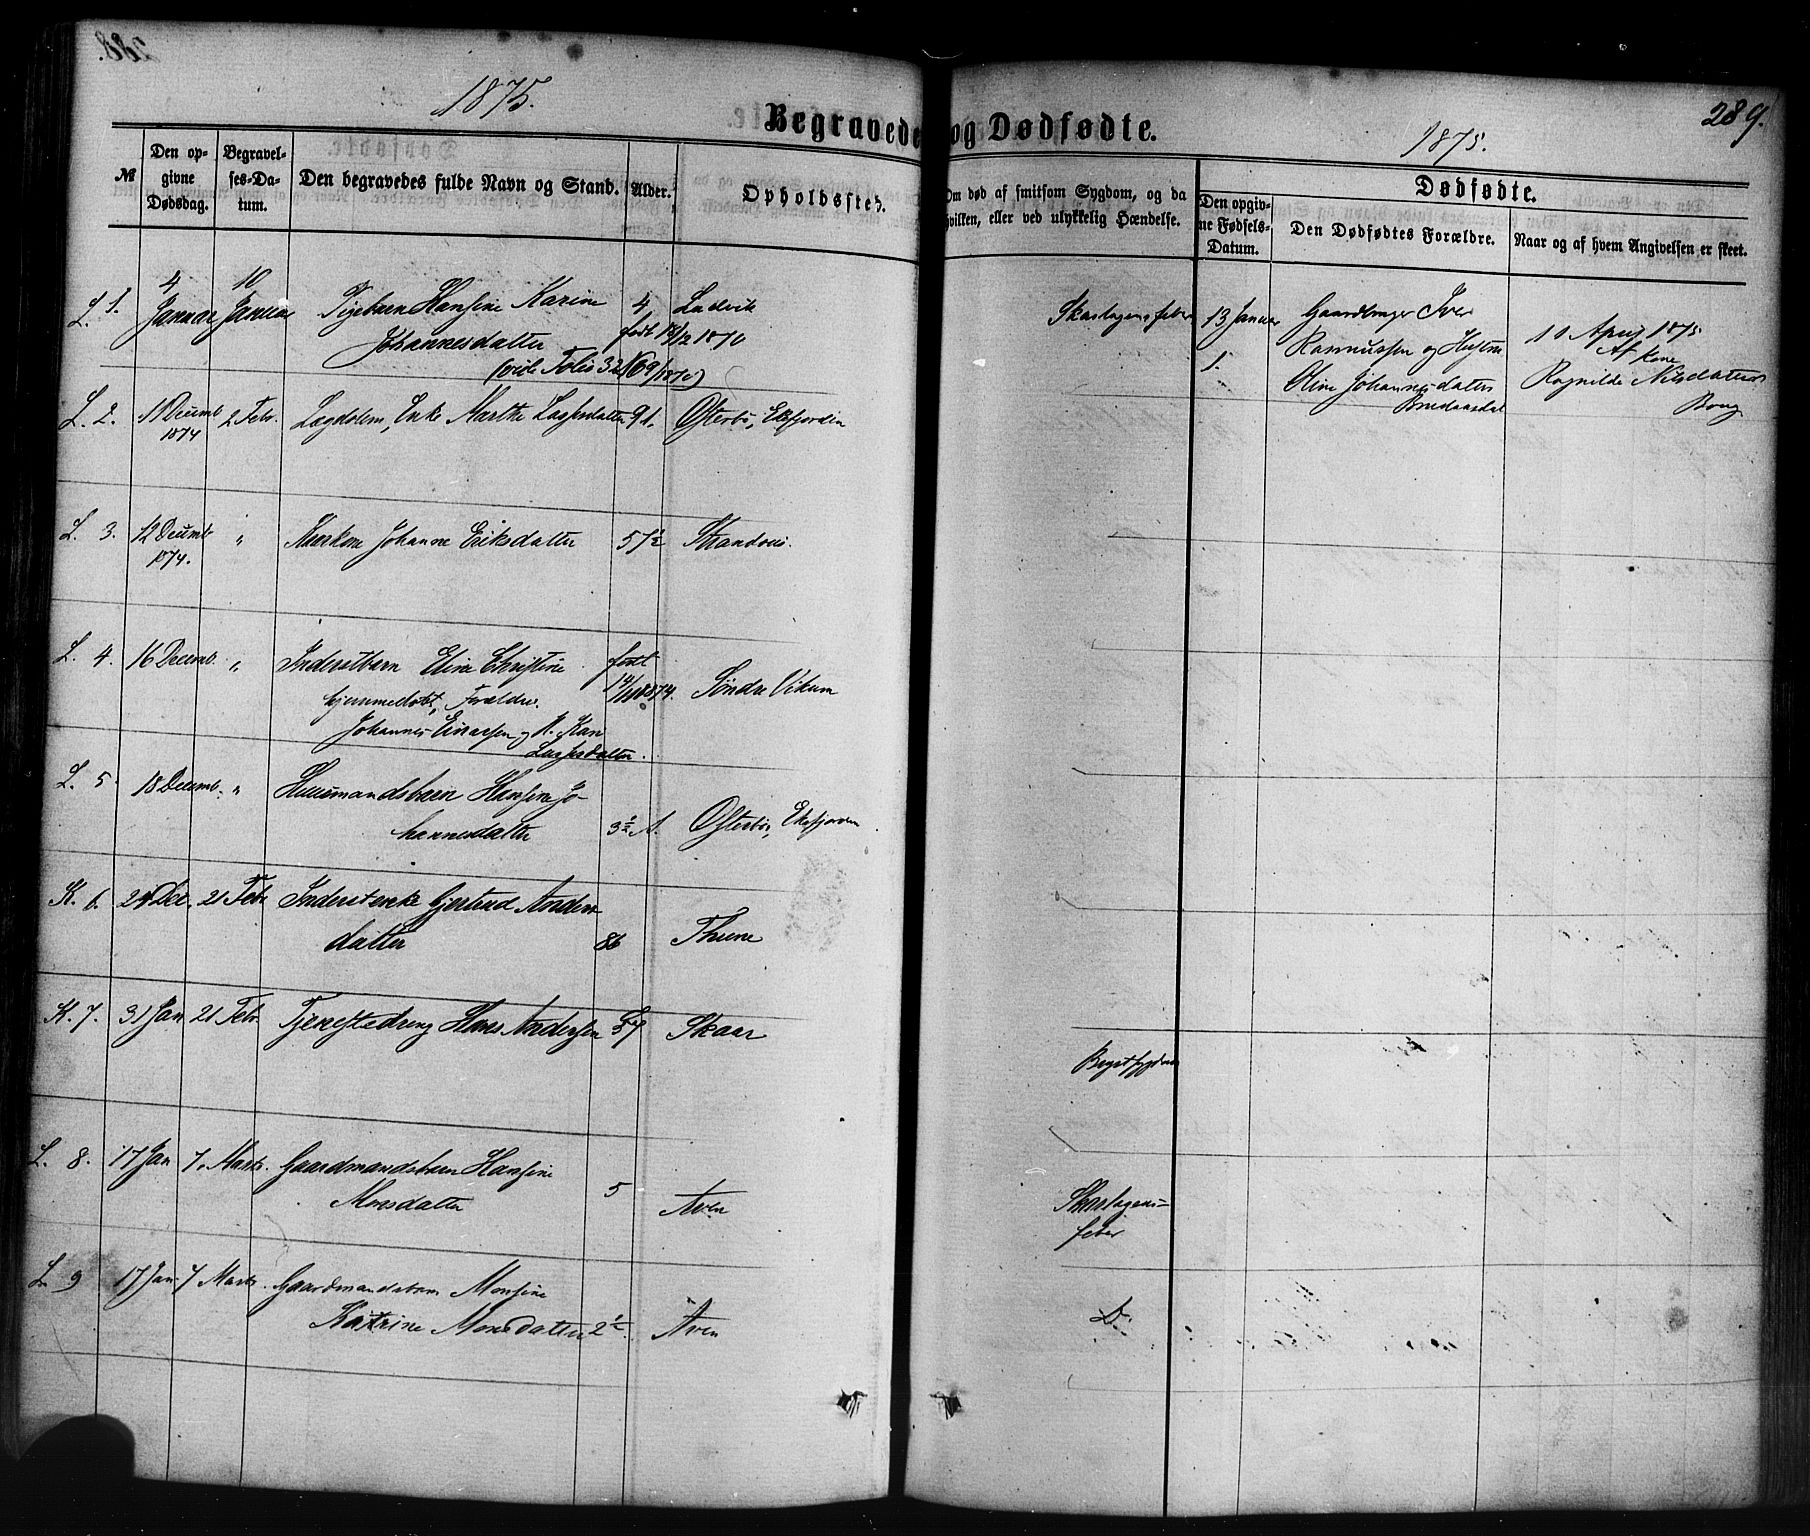 1875.
Begravede og Dødfødte.
1875.
289.
№
Den opgivne Dødsdag.
Begravelses-Datum.
Den begravedes fulde Navn og Stand.
Alder.
Opholdssted.
Om død af smitsom Sygdom, og da hvilken, eller ved ulykkelig Hændelse.
Dødfødte.
Den opgivne Fødsels-Datum.
Den Dødfødtes Forældre.
Naar og af hvem Angivelsen er skeet.
L. 1. 4 Januar 10 Januar Pigebarn Hansine Karine 4 Ladvik Skarlagensfeber
Johannesdatter født 18/2 1870
(vide Folio 32 № 69/1870)
1. 13 Januar Gaardbruger Iver
Rasmussen og Hustru
Oline Johannesdatter
Bredaasdal
10 April 1875
Af Kone
Ragnilde Nilsdatter
L. 2. 11 Decemb 1874 2 Febr. Lægdslem, Enke Marthe Lassesdatter 91. Østerbø, Eksfjorden
L. 3. 12 Decemb 1874. " Huuskone Johanne Eriksdatter 57½ Strandviis.
L. 4. 16 Decemb. " Inderstbarn Eline Christine født Søndre Vikum
hjemmedøbt, Forældre 1874.
Johannes Einarsen og A. Kari
Lassesdatter.
L. 5. 18 Decemb. " Huusmandsbarn Hansine Jo-
hannesdatter 3½ A. Østerbø, Eksfjorden
K. 6. 24 Dec. 21 Febr Inderstenke Gjertrud Anders-
datter 86 Thune
K. 7. 31 Jan 21 Febr. Tjenestedreng Hans Andersen Skaar Brystsygdom
L. 8. 17 Jan 7. Marts. Gaardmandsbarn Hansine
Monsdatter 5 Aven Skarlagens-
feber
L. 9 17 Jan. 7 Marts. Gaardmandsbarn Monsine
Katrine Monsdatter 2½. Aven D.